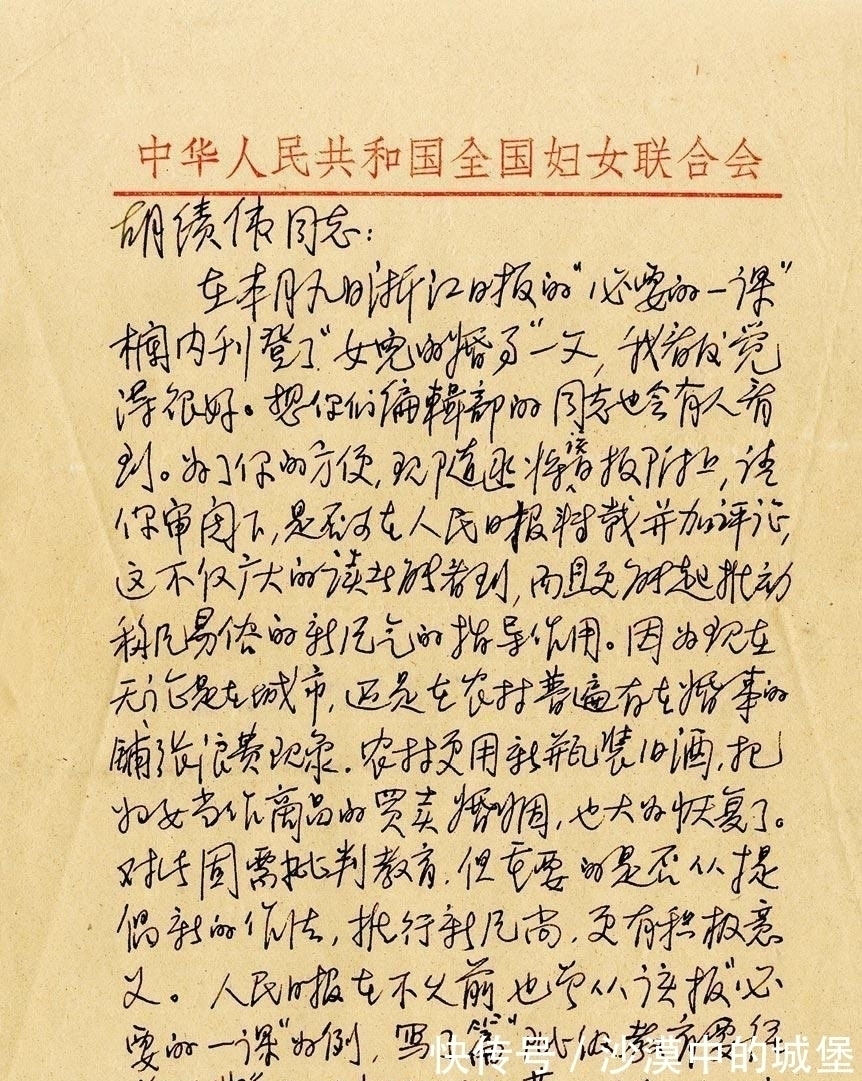 中华人民共和国全国妇女联合会
胡绩伟同志：
在本月九日浙江日报的“必要的一课”
栏内刊登了“女儿的婚事”一文，我看后觉
得很好。想你们编辑部的同志也会有人看
到。为了你的方便，现随函将该报附上，请
你审阅下，是否可在人民日报转载并加评论，
这不仅广大的读者能看到，而且更能起推动
移风易俗的新风气的指导作用。因为现在
无论是在城市，还是在农村普遍存在婚事的
铺张浪费现象。农村更用新瓶装旧酒，把
妇女当作商品的买卖婚姻，也大为恢复了。
对此固需批判教育，但重要的是否从提
倡新的作法，推行新风尚，更有积极意
义。人民日报在不久前也曾从该报“必
要的一课”为例，写了篇
快传号／沙漠中的城堡